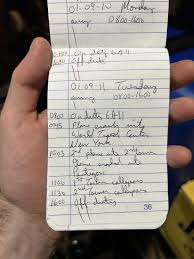 01-09-10 Monday
0800-1600
0800 On duty 6411
1600 Off duty
01-09-11 Tuesday
0800-1600
0800 On duty 6411
Plane crashes into
World Trade Center
New York
1003 2nd plane into 2nd tower
Plane crashed into
Pentagon
1st tower collapses
1130 2nd tower collapses
1600 Off duty
36